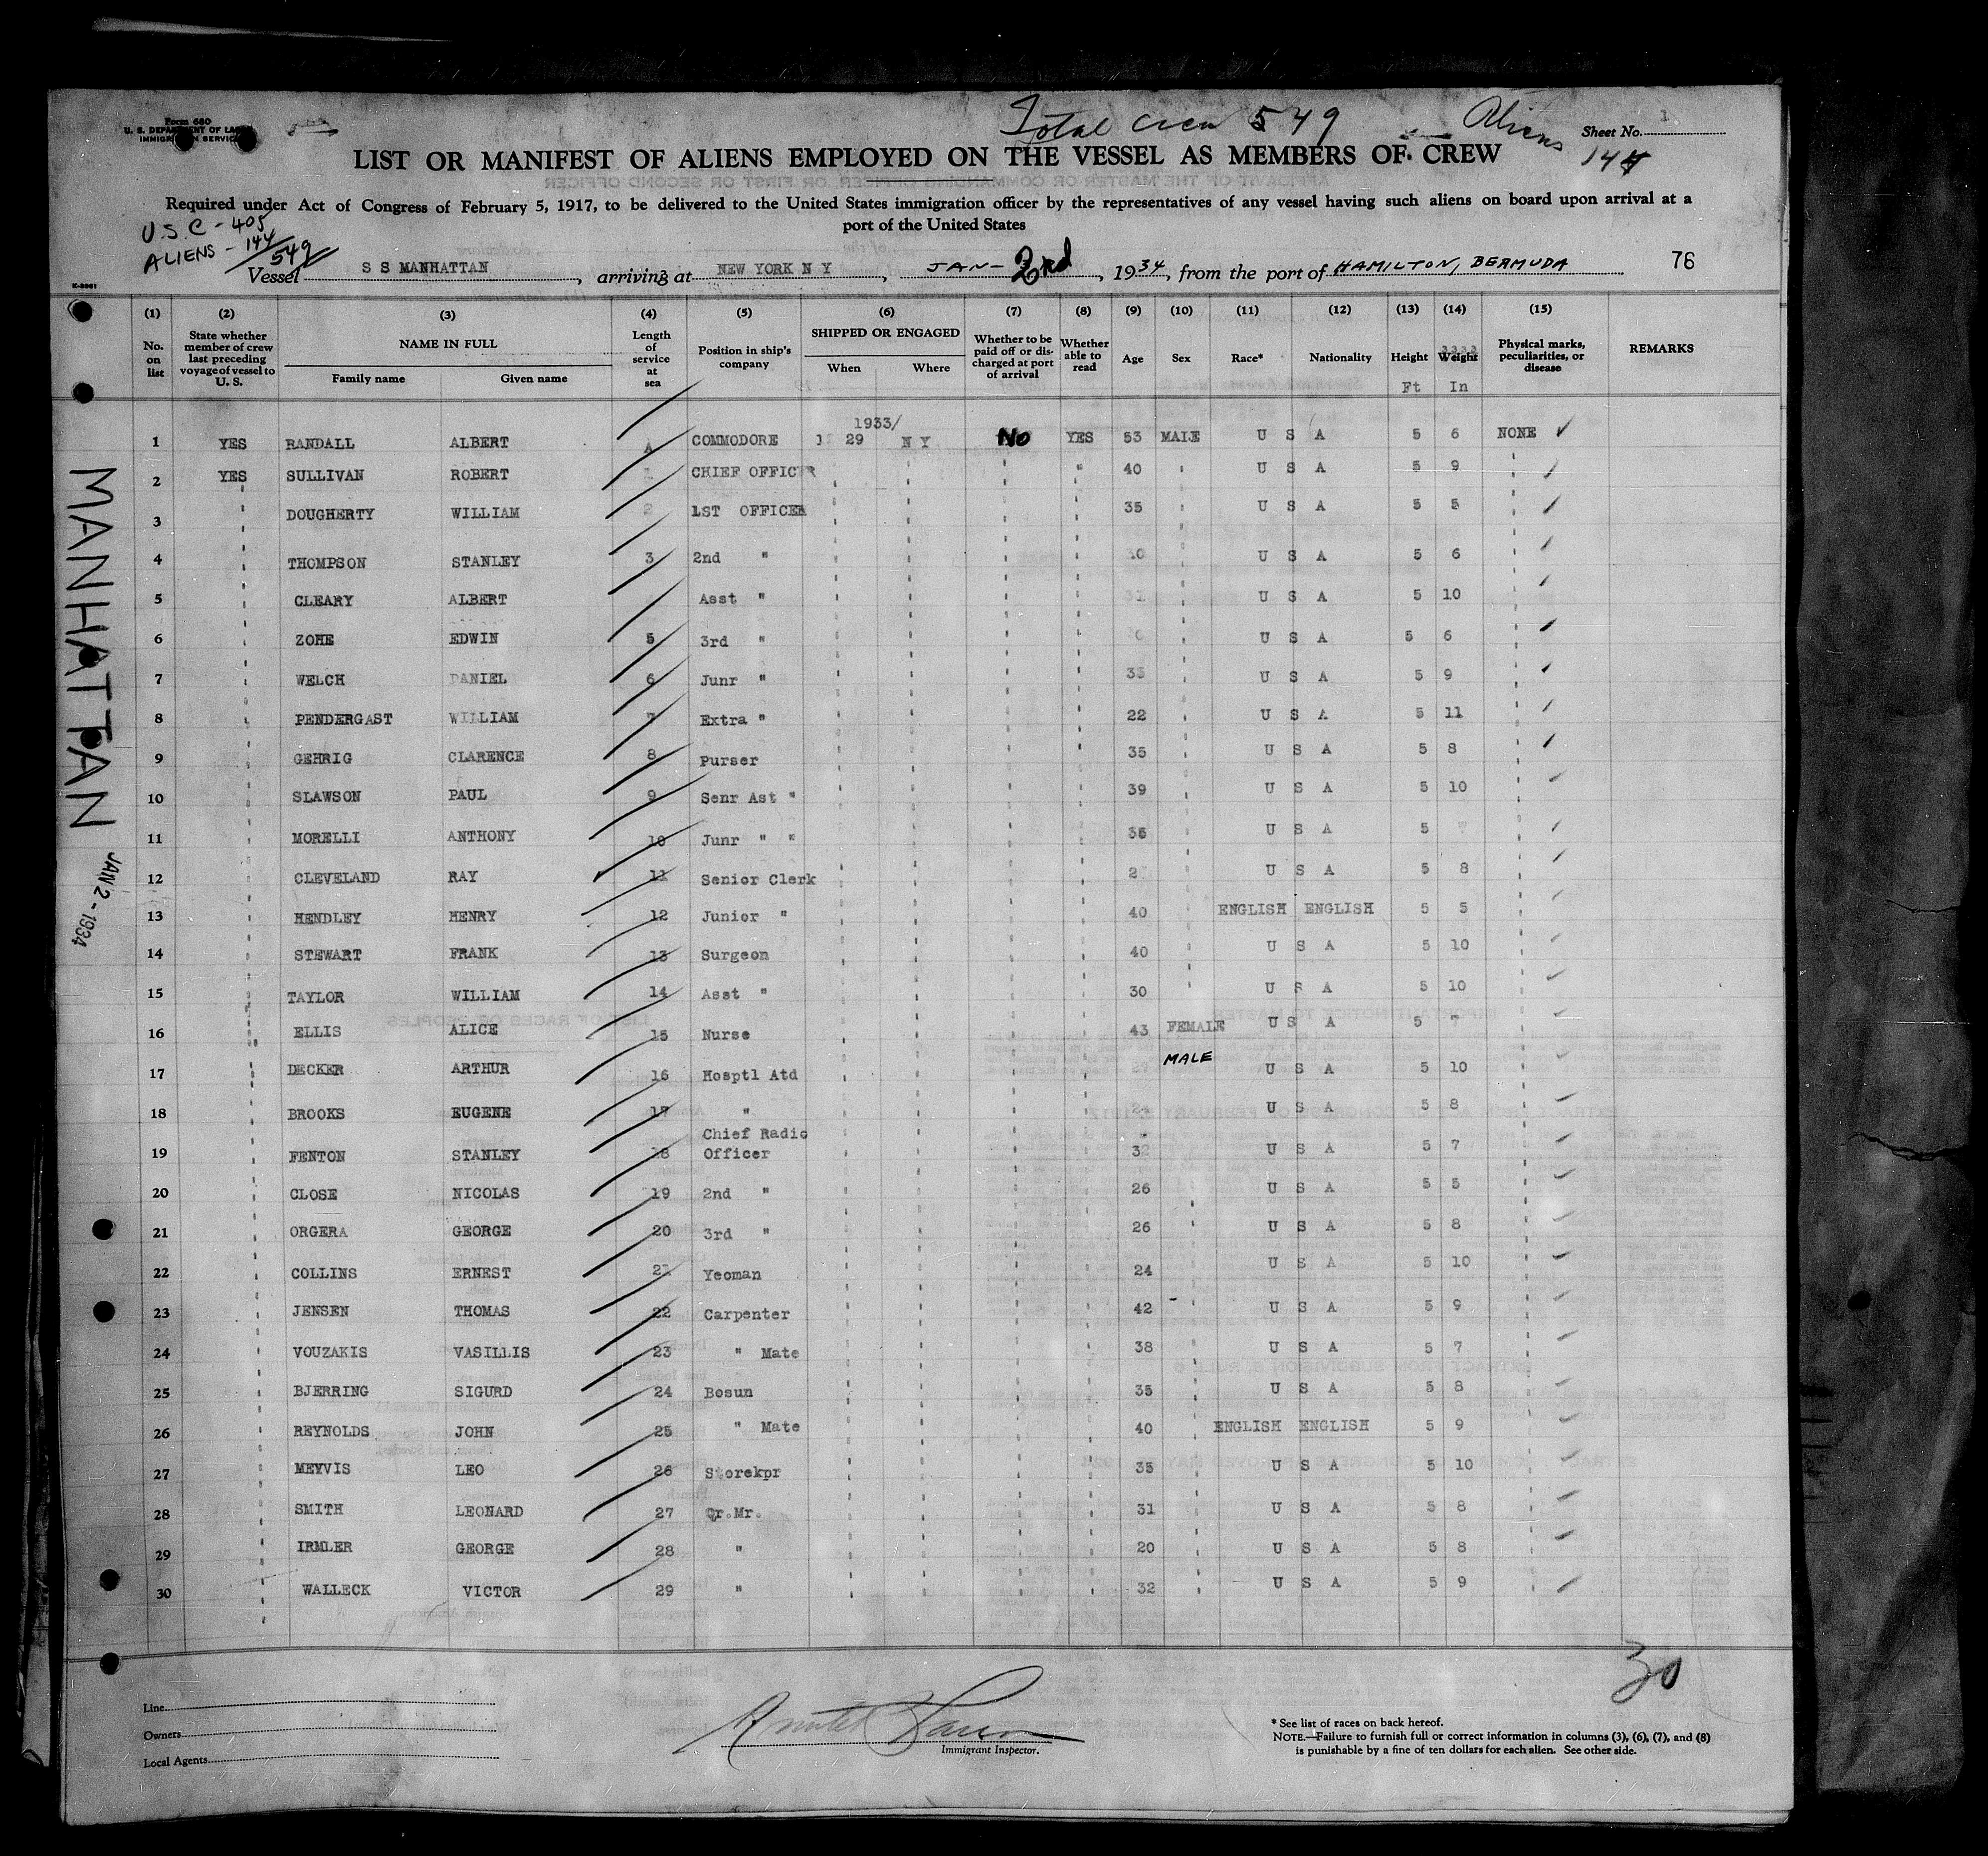 Form 680
U. S. DEPARTMENT OF LABOR
IMMIGRATION SERVICE
Total Crew 549 Aliens 144
Sheet No. 1
LIST OR MANIFEST OF ALIENS EMPLOYED ON THE VESSEL AS MEMBERS OF CREW
Required under Act of Congress of February 5, 1917, to be delivered to the United States immigration officer by the representatives of any vessel having such aliens on board upon arrival at a
port of the United States
U.S.C - 405
ALIENS - 144
549
Vessel S S MANHATTAN, arriving at NEW YORK N Y, JAN- 2nd, 1934, from the port of HAMILTON, BERMUDA 76
(1) (2) (3) (4) (5) (6) (7) (8) (9) (10) (11) (12) (13) (14) (15)
No. on list
State whether member of crew last preceding voyage of vessel to U. S.
NAME IN FULL
Family name Given name
Length of service at sea
Position in ship's company
SHIPPED OR ENGAGED
When Where
Whether to be paid off or discharged at port of arrival
Whether able to read
Age Sex Race* Nationality Height Weight
Ft In
Physical marks, peculiarities, or disease
REMARKS
1933/
1 YES RANDALL ALBERT COMMODORE 29 N Y No YES 53 MALE U S A 5 6 NONE
2 YES SULLIVAN ROBERT CHIEF OFFICR " 40 " U S A 5 9
3 " DOUGHERTY WILLIAM 2 1ST OFFICER " 35 " U S A 5 5
4 " THOMPSON STANLEY 3 2nd " " " U S A 5 6
5 " CLEARY ALBERT Asst " " " U S A 5 10
6 " ZOHE EDWIN 5 3rd " " " U S A 5 6
7 " WELCH DANIEL 6 Junr " " 35 " U S A 5 9
8 " PENDERGAST WILLIAM 7 Extra " " 22 " U S A 5 11
9 " GEHRIG CLARENCE 8 Purser " 35 " U S A 5 8
10 " SLAWSON PAUL 9 Senr Ast " " 39 " U S A 5 10
11 " MORELLI ANTHONY 10 Junr " " " 36 " U S A 5
12 " CLEVELAND RAY 11 Senior Clerk " " U S A 5 8
13 " HENDLEY HENRY 12 Junior " " 40 " ENGLISH ENGLISH 5 5
14 " STEWART FRANK 13 Surgeon " 40 " U S A 5 10
15 " TAYLOR WILLIAM 14 Asst " " 30 " U S A 5 10
16 " ELLIS ALICE 15 Nurse " 43 FEMALE U S A 5 7
17 " DECKER ARTHUR 16 Hosptl Atd " MALE U S A 5 10
18 " BROOKS EUGENE 17 " " 24 " U S A 5 8
19 " FENTON STANLEY 18 Chief Radio Officer " 32 " U S A 5 7
20 " CLOSE NICOLAS 19 2nd " " 26 " U S A 5 5
21 " ORGERA GEORGE 20 3rd " " 26 " U S A 5 8
22 " COLLINS ERNEST 21 Yeoman " 24 " U S A 5 10
23 " JENSEN THOMAS 22 Carpenter " 42 " U S A 5 9
24 " VOUZAKIS VASILLIS 23 " Mate " 38 " U S A 5 7
25 " BJERRING SIGURD 24 Bosun " 35 " U S A 5 8
26 " REYNOLDS JOHN 25 " Mate " 40 " ENGLISH ENGLISH 5 9
27 " MEYVIS LEO 26 Storekpr " 35 " U S A 5 10
28 " SMITH LEONARD 27 Qr.Mr. " 31 " U S A 5 8
29 " IRMLER GEORGE 28 " " 20 " U S A 5 8
30 " WALLECK VICTOR 29 " " 32 " U S A 5 9
MANHATTAN
JAN 2 - 1934
30
Line
Owners
Local Agents
Immigrant Inspector.
* See list of races on back hereof.
NOTE.—Failure to furnish full or correct information in columns (3), (6), (7), and (8)
is punishable by a fine of ten dollars for each alien. See other side.